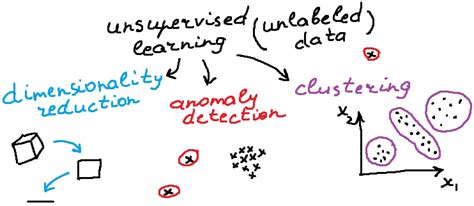 unsupervised
learning
(unlabeled
data)
dimensionality
reduction
anomaly
detection
clustering
x₂
x₁